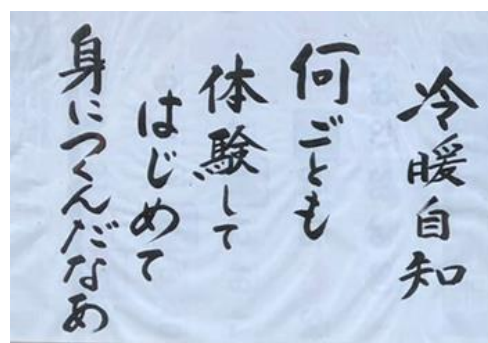 冷暖自知
何ごとも
体験して
はじめて
身につくんだなあ